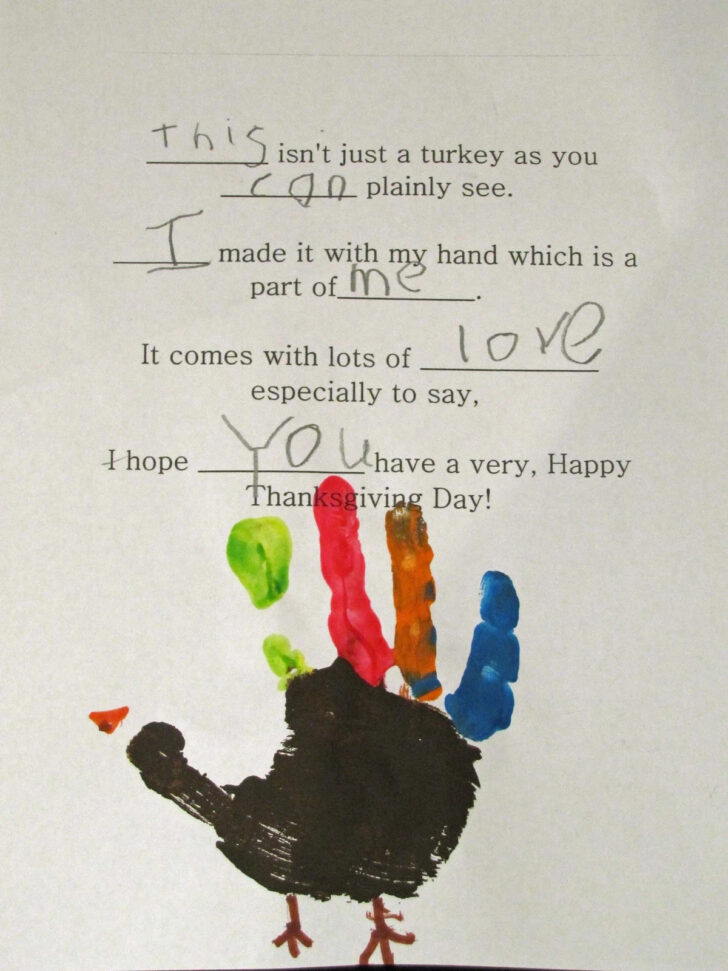 This isn't just a turkey as you
can plainly see.
I made it with my hand which is a
part of me.
It comes with lots of love
especially to say,
I hope you have a very, Happy
Thanksgiving Day!